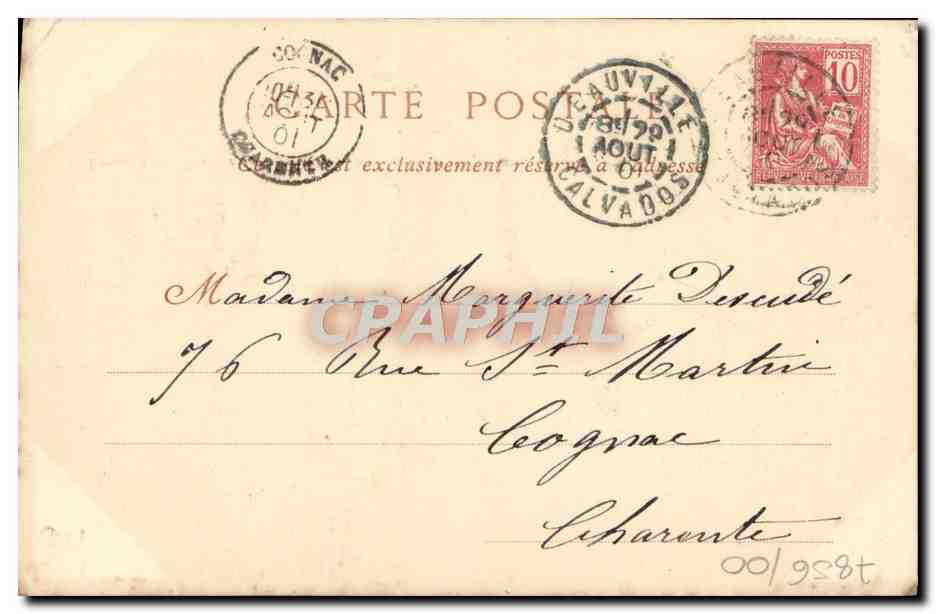 COGNAC
31
AOUT
01
CHARENTE
CARTE POSTALE
DEAUVILLE
8E 29
AOUT
01
CALVADOS
POSTES
10
est exclusivement réservé à l'adresse
Madame Marguerite Descudé
CPAPHIL
76 Rue St Martin
Cognac
Charente
+856/00